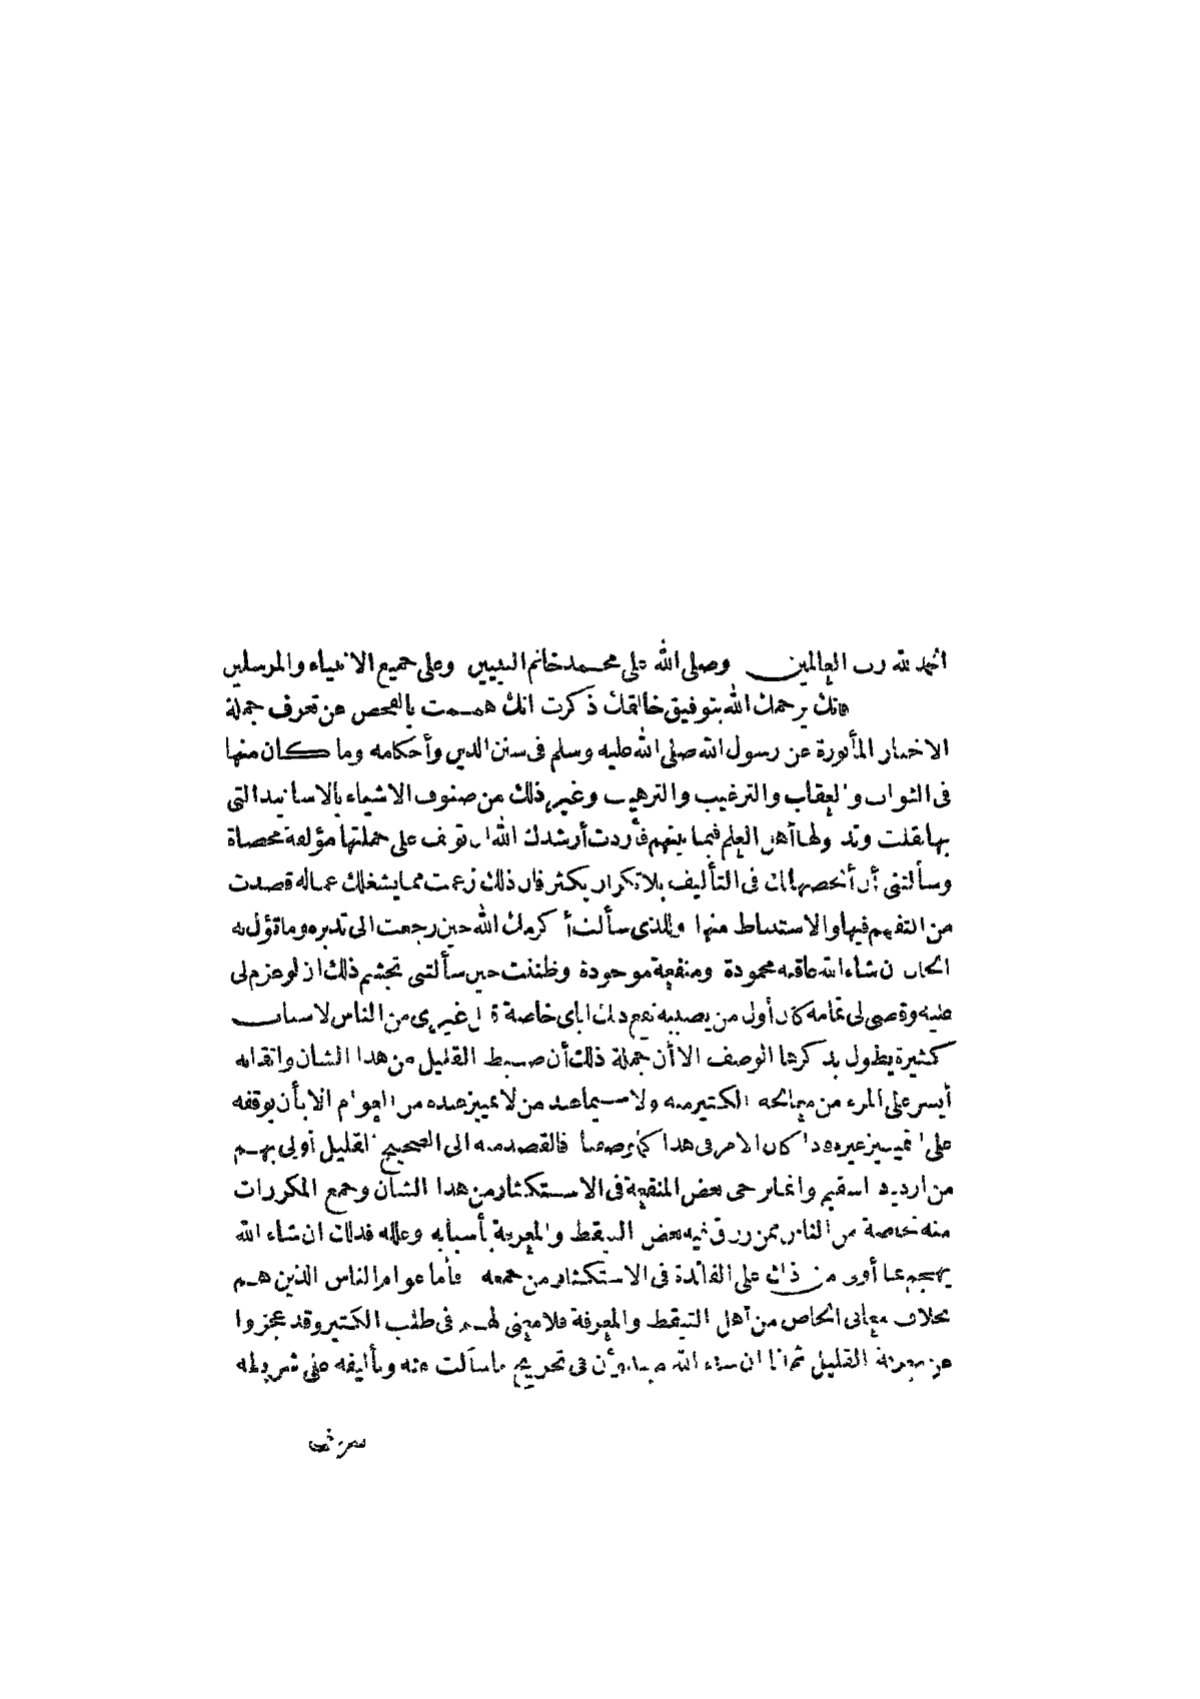 الحمد لله رب العالمين وصلى الله على محمد خاتم النبيين وعلى جميع الانبياء والمرسلين
فانك يرحمك الله بتوفيق خالقك ذكرت انك هممت بالفحص عن تعرف جملة
الاخبار المأثورة عن رسول الله صلى الله عليه وسلم فى سنن الدين وأحكامه وما كان منها
فى الثواب والعقاب والترغيب والترهيب وغير ذلك من صنوف الاشياء بالاسانيد التى
بها نقلت وتداولها أهل العلم فيما بينهم فأردت أرشدك الله ان توقف على جملتها مؤلفة محصاة
وسألتنى أن ألخصها لك فى التأليف بلا تكرار يكثر فان ذلك زعمت مما يشغلك عما له قصدت
من التفهم فيها والاستنباط منها وللذى سألت أكرمك الله حين رجعت الى تدبره وما تؤل به
الحال ان شاء الله عاقبة محمودة ومنفعة موجودة وظننت حين سألتنى تجشم ذلك ان لو عزم لى
عليه وقضى لى تمامه كان أول من يصيبه نفع ذلك اياى خاصة قبل غيرى من الناس لاسباب
كثيرة يطول بذكرها الوصف الا أن جملة ذلك أن ضبط القليل من هذا الشان واتقانه
أيسر على المرء من معالجة الكثير منه ولا سيما عند من لا تمييز عنده من العوام الا بأن يوقفه
على التمييز غيره فاذا كان الامر فى هذا كما وصفنا فالقصد منه الى الصحيح القليل أولى بهم
من ازدياد السقيم وانما يرجى بعض المنفعة فى الاستكثار من هذا الشأن وجمع المكررات
منه لخاصة من الناس ممن رزق فيه بعض التيقظ والمعرفة بأسبابه وعلله فذلك ان شاء الله
يهجم بما أوتى من ذلك على الفائدة فى الاستكثار من جمعه فأما عوام الناس الذين هم
بخلاف معانى الخاص من أهل التيقظ والمعرفة فلا معنى لهم فى طلب الكثير وقد عجزوا
عن معرفة القليل ثم انا ان شاء الله مبتدؤن فى تخريج ما سألت عنه وتأليفه على شريطة